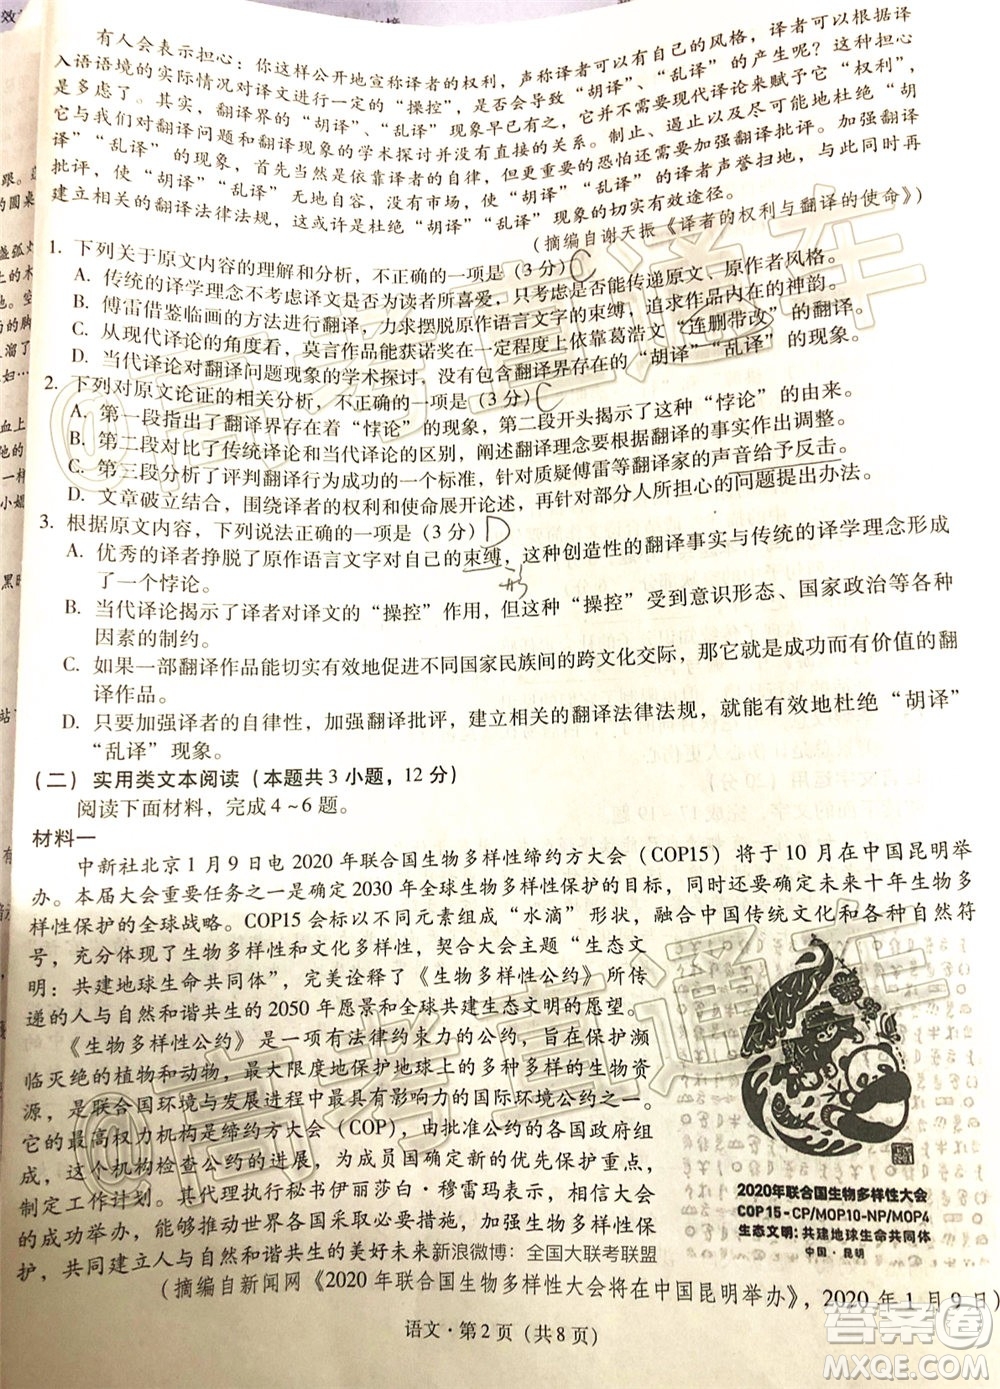 有人会表示担心：你这样公开地宣称译者的权利，声称译者可以有自己的风格，译者可以根据译
入语语境的实际情况对译文进行一定的“操控”，是否会导致“胡译”、“乱译”的产生呢？这种担心
是多虑了。其实，翻译界的“胡译”、“乱译”现象早已有之，它并不需要现代译论来赋予它“权利”，
它与我们对翻译问题和翻译现象的学术探讨并没有直接的关系。制止、遏止以及尽可能地杜绝“胡
译”“乱译”的现象，首先当然是依靠译者的自律，但更重要的恐怕还是要加强翻译批评。加强翻译
批评，使“胡译”“乱译”无地自容，没有市场，使“胡译”“乱译”的译者声誉扫地，与此同时再
建立相关的翻译法律法规，这或许是杜绝“胡译”“乱译”现象的切实有效途径。
（摘编自谢天振《译者的权利与翻译的使命》）
1. 下列关于原文内容的理解和分析，不正确的一项是（3分）C
A. 传统的译学理念不考虑译文是否为读者所喜爱，只考虑是否能传递原文、原作者风格。
B. 傅雷借鉴临画的方法进行翻译，力求摆脱原作语言文字的束缚，追求作品内在的神韵。
C. 从现代译论的角度看，莫言作品能获诺奖在一定程度上依靠葛浩文“连删带改”的翻译。
D. 当代译论对翻译问题现象的学术探讨，没有包含翻译界存在的“胡译”“乱译”的现象。
2. 下列对原文论证的相关分析，不正确的一项是（3分）C
A. 第一段指出了翻译界存在着“悖论”的现象，第二段开头揭示了这种“悖论”的由来。
B. 第二段对比了传统译论和当代译论的区别，阐述翻译理念要依据翻译的事实作出调整。
C. 第三段分析了评判翻译行为成功的一个标准，针对质疑傅雷等翻译家的声音给予反击。
D. 文章破立结合，围绕译者的权利和使命展开论述，并针对部分人所担心的问题提出办法。
3. 根据原文内容，下列说法正确的一项是（3分）D
A. 优秀的译者挣脱了原作语言文字对自己的束缚，这种创造性的翻译事实与传统的译学理念形成
了一个悖论。
B. 当代译论揭示了译者对译文的“操控”作用，但这种“操控”受到意识形态、国家政治等各种
因素的制约。
C. 如果一部翻译作品能切实有效地促进不同国家民族间的跨文化交际，那它就是成功而有价值的翻
译作品。
D. 只要加强译者的自律性，加强翻译批评，建立相关的翻译法律法规，就能有效地杜绝“胡译”
“乱译”现象。
（二）实用类文本阅读（本题共3小题，12分）
阅读下面材料，完成4~6题。
材料一
中新社北京1月9日电2020年联合国生物多样性缔约方大会（COP15）将于10月在中国昆明举
办。本届大会重要任务之一是确定2030年全球生物多样性保护的目标，同时还要确定未来十年生物多
样性保护的全球战略。COP15会标以不同元素组成“水滴”形状，融合中国传统文化和各种自然符
号，充分体现了生物多样性和文化多样性，契合大会主题“生态文
明：共建地球生命共同体”，完美诠释了《生物多样性公约》所传
递的人与自然和谐共生的2050年愿景和全球共建生态文明的愿望。
《生物多样性公约》是一项有法律约束力的公约，旨在保护濒
临灭绝的植物和动物，最大限度地保护地球上的多种多样的生物资
源，是联合国环境与发展进程中最具有影响力的国际环境公约之一。
它的最高权力机构是缔约方大会（COP），由批准公约的各国政府组
成，这个机构检查公约的进展，为成员国确定新的优先保护重点，
制定工作计划。其代理执行秘书伊丽莎白·穆雷玛表示，相信大会
的成功举办，能够推动世界各国采取必要措施，加强生物多样性保
护，共建人与自然和谐共生的美好未来新浪微博：全国大联考联盟
（摘编自新闻网《2020年联合国生物多样性大会将在中国昆明举办》，2020年1月9日）
2020年联合国生物多样性大会
COP15-CP/MOP10-NP/MOP4
生态文明：共建地球生命共同体
中国·昆明
语文·第2页（共8页）
@高考直通车
@高考直通车
答案圈
MXQE.COM